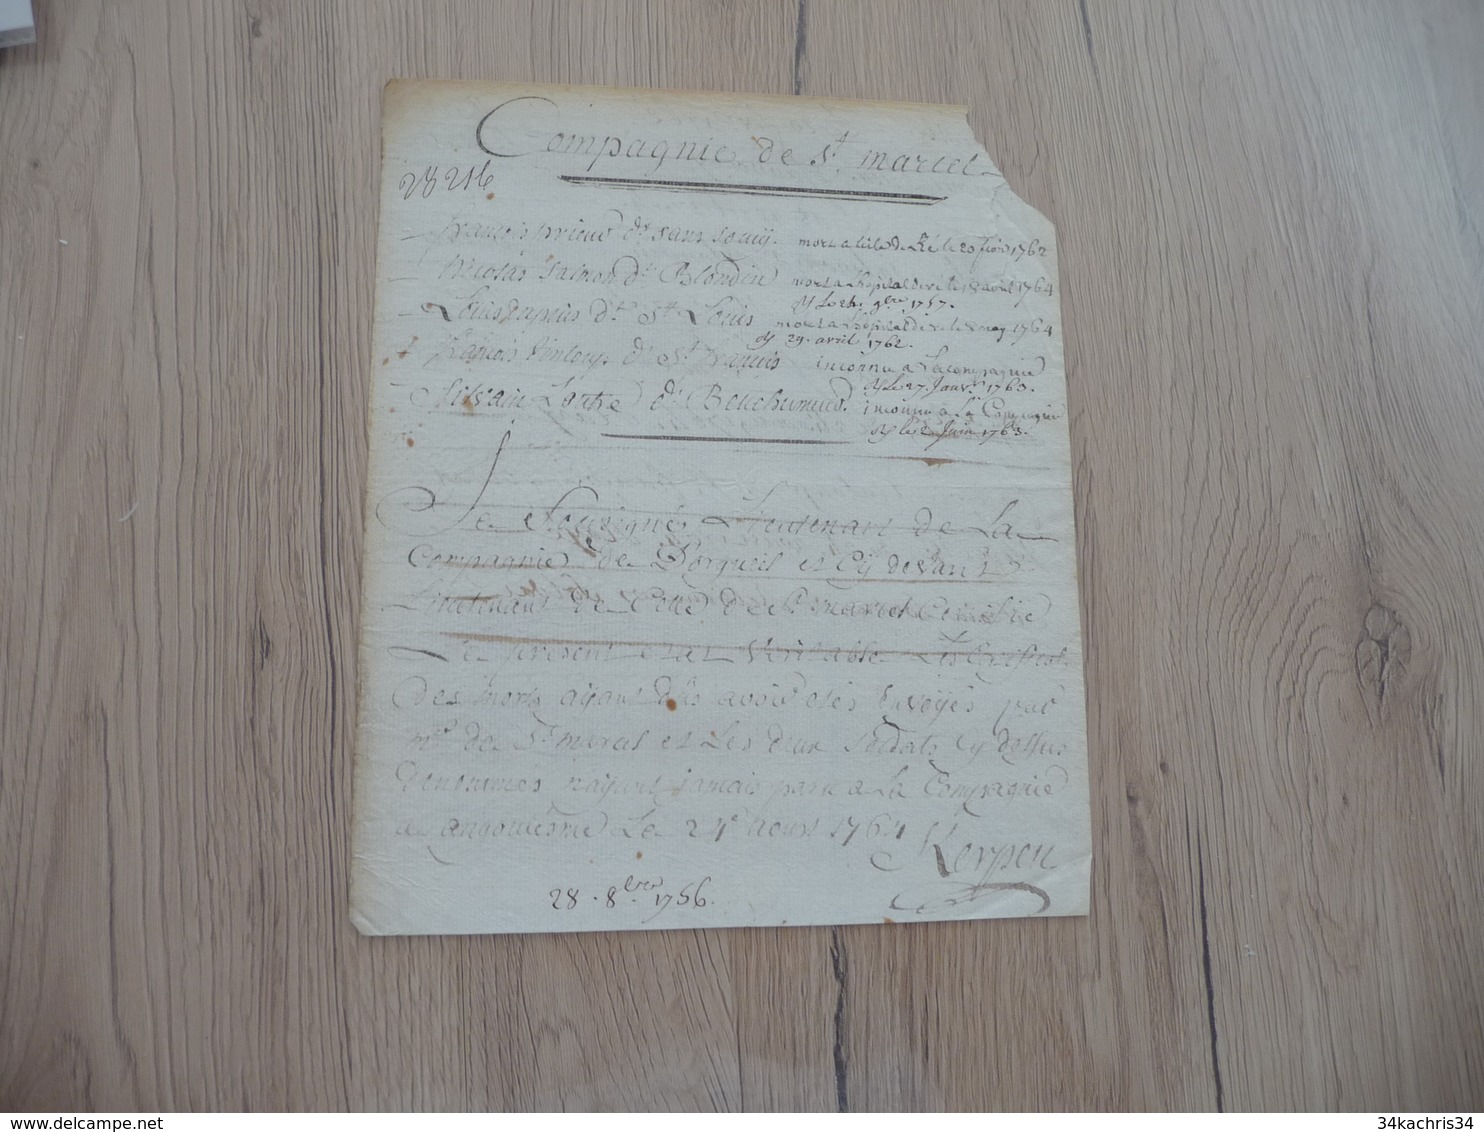 Compagnie de St. marcel
28 216
françois prieur dt. sans souçy. mort a L'ile de Ré le 20 1762
Nicolas Salmon dt. Blondin mort a Lhopital de ré le 18 avril 1764
9bre 1757.
Louis dt. St. Louis mort a Lhopital de ré le may 1764
29. avril 1762.
françois dt. St. françois inconnu a La compagnie
Le 27. Janv. 1763.
Silvain Loutre dt. inconnu a La Compagnie
le 2 Juin 1763.
Je Soussigné Lieutenant de La
Compagnie de D'orgueil et Cy devant
Lieutenant de Celle de St. marcel Certifie
Le présent etat Véritable Les Certificats
Des morts ayant dûs avoir etés Envoyés par
mr. de St. marcel et Les deux Soldats Cy dessus
denommés n'ayant jamais paru a La Compagnie
a angoulesme Le 24e. Aoust 1764
Kerpen
28. 8bre. 1756.
34kachris34